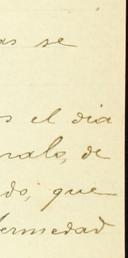 as se
s el dia
ralo, de
do, que
fermedad